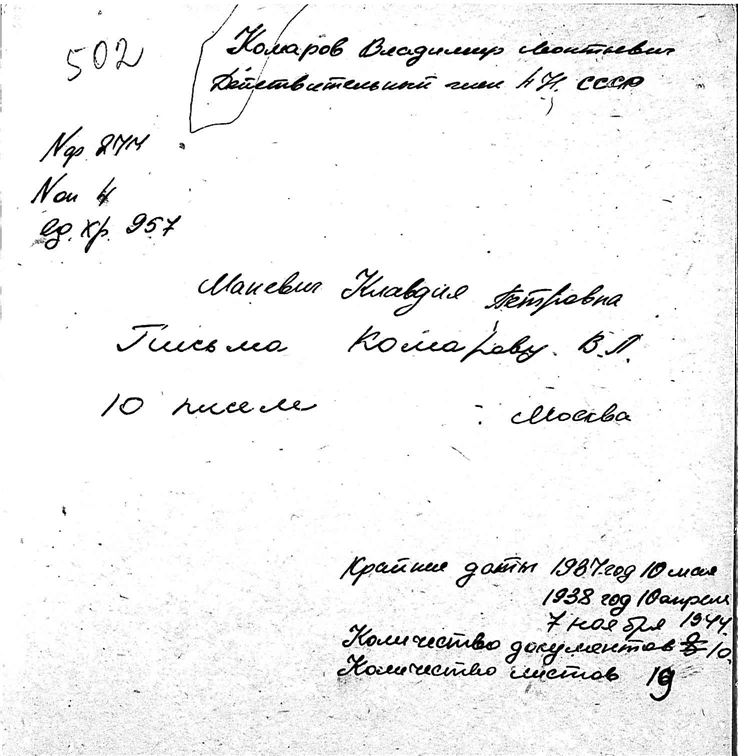 502
Комаров Владимир Леонтьевич
Действительный член АН. СССР
Nф. 277
Nоп 4
ед. хр. 957
Маневич Клавдия Петровна
Письма Комарову. В.Л.
10 писем Москва
Крайние даты 1937 год 10 мая
1938 год 10 апреля
7 ноября 1944.
Количество документов 10.
Количество листов 19